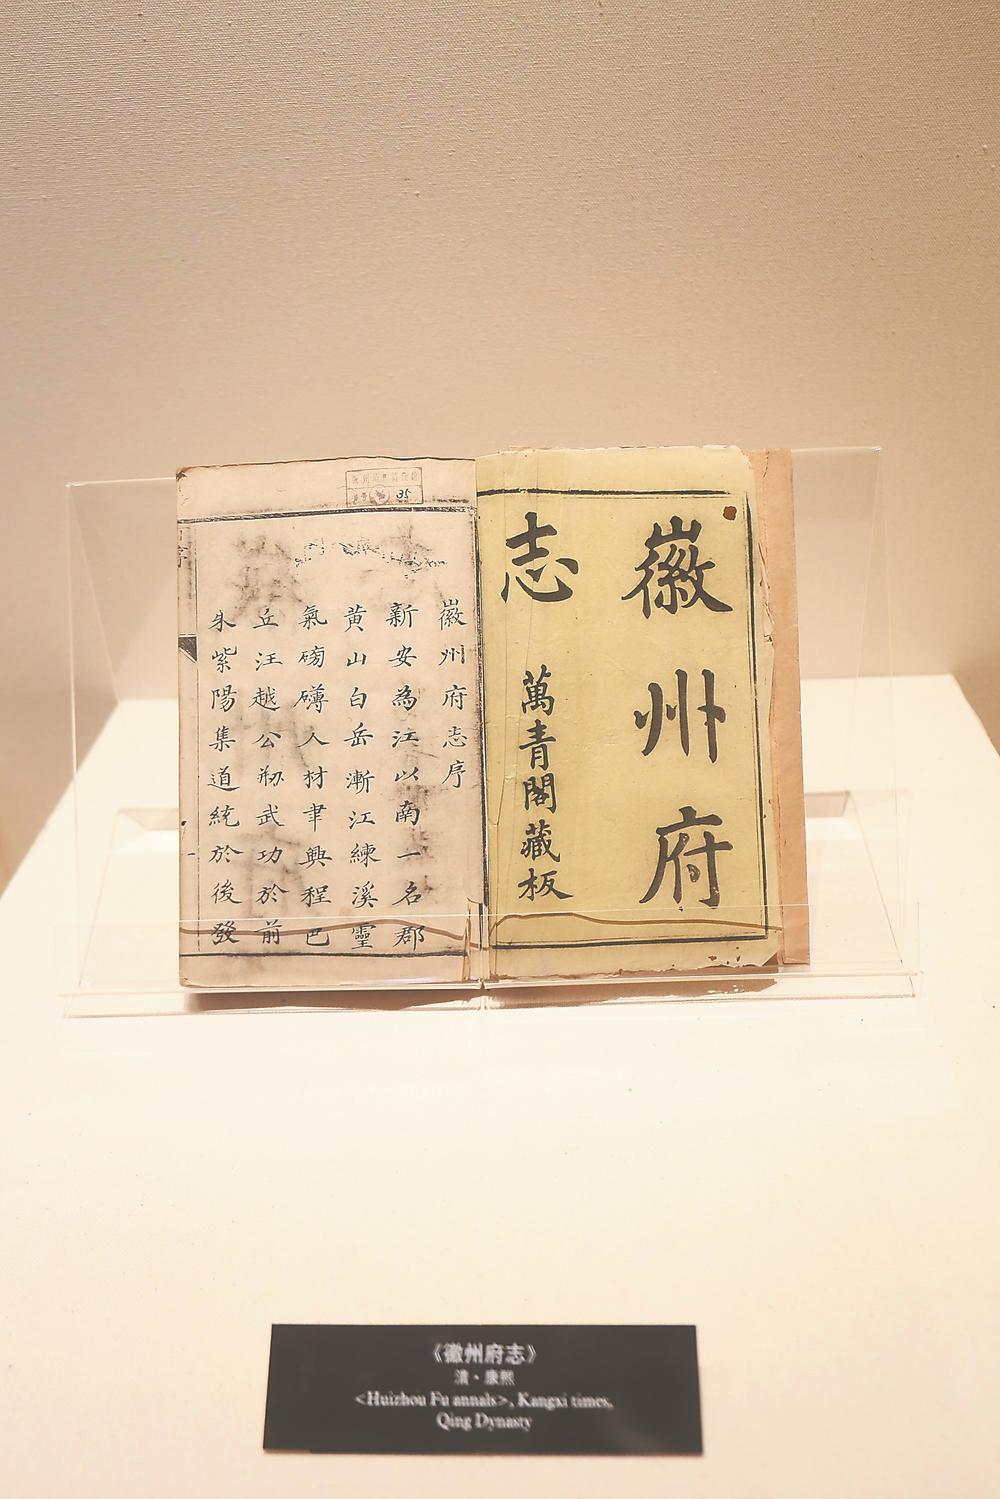 徽州府
志
萬青閣藏板
徽州府志序
新安為江以南一名郡
黃山白岳漸江練溪靈
氣磅礴人材聿興程巴
丘汪越公刱武功於前
朱紫陽集道統於後發
35
《徽州府志》
清·康熙
<Huizhou Fu annals>, Kangxi times,
Qing Dynasty